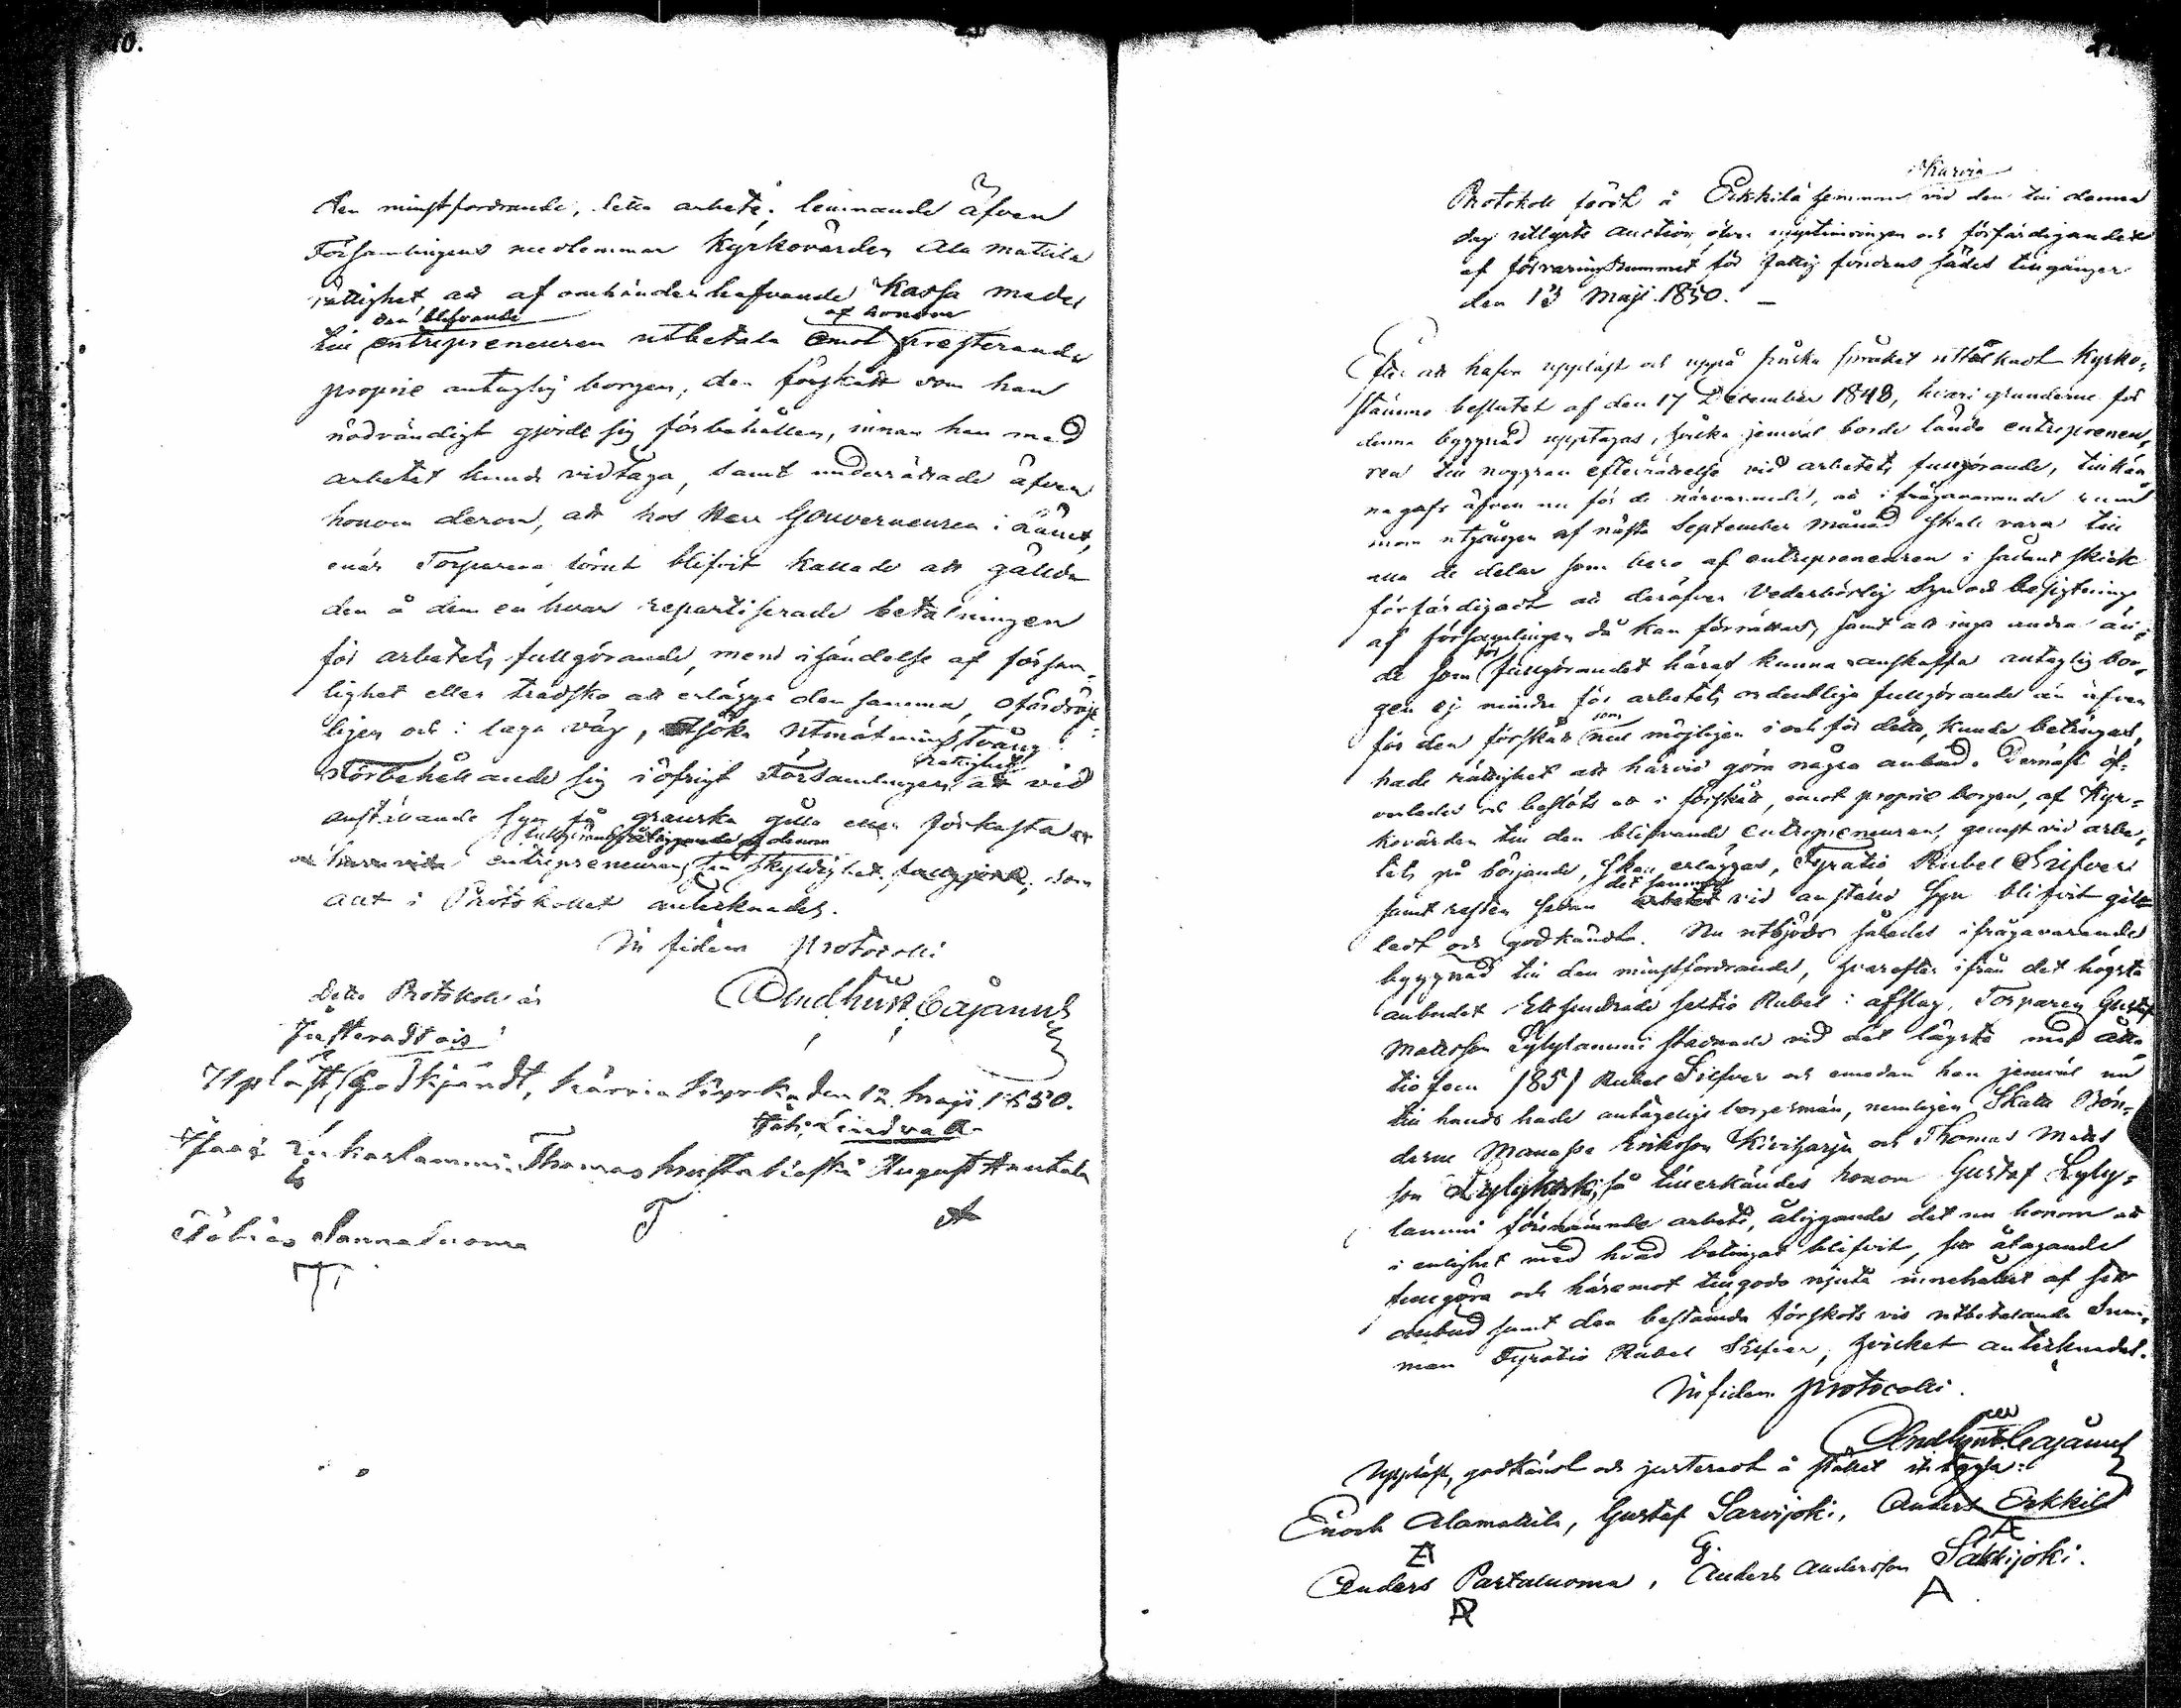 10.
den minstfordrande, detta arbete; lemnande äfven
Församlingens medlemmar Kyrkovärden Ala Mattila
rättighet att af omhänderhafvande Kassa medel
den blifvande af honom
till entrepreneuren utbetala emot presterande
proprie antaglig borgen, den förskått som han
nödvändigt gjorde sig förbehållen, innan han med
arbetet kunde vidtaga, samt underrättade äfven
honom derom, att hos Herr Gouverneuren i Länet,
enär Torparena förut blifvit kallade att gällda
den å dem en hvar repartiserade betalningen
för arbetets fullgörande, mend i händelse af försum-
lighet eller tredsko att erlägga den samma, ofördröj-
ligen och i laga väg, söka utmätnings tvång
rättighet
Förbehållande sig i öfrigt Församlingen att vid
anställande syn få granska gilla eller förkasta
fullgörande åliggande af denom
entrepreneurens skyldighet, som
allt i Protokollet antecknades.
In fidem protocolli
And. Cajanus
Detta Protokoll är
Justeradt ois
Uplåst, Godkjändt, Karvia Kyrka den 12 Maji 1850.
Joh: Lindvall
Isaac Thomas August Anttila
Tobias Sannaluoma
T
Karvia
Protokoll fördt å Erkkilä hemman vid den till denna
dag utlyste auction, öfver upptimringen och förfärdigandet
af förvaringsrummet för fattig fondens sädes tillgånger
den 13 Maji 1850. —
Efter att hafva uppläst och uppå finska språket uttålkadt Kyrko-
stämmo beslutet af den 17 December 1848, hvari grunderne för
denna byggnad upptagas, hvilka jemväl borde lända entreprenen-
ren till noggran efterrättelse vid arbetets fullgörande, tillkän-
nagafs äfven nu för de närvarande, att ifrågavarande rum
inom utgången af nästa September månad skall vara till
alla de delar som bero af entrepreneuren i sådant skick
förfärdigadt att deröfver Vederbörlig Syn och besigtning
af församlingen då kan förrättas, samt att inga andra än
för
de som fullgörandet häraf kunna anskaffa antaglig bor-
gen ej mindre för arbetets ordentliga fullgörande än äfven
som
för den förskått möjligen i och för detta, kunde betingas,
hade rättighet att härvid göra några anbud. Dernäst öf-
verlades och beslöts att i förskått, emot proprie borgen, af Kyr-
kovärden till den blifvande entrepreneuren, genast vid arbe-
tets på börjande, skall erläggas, Fyratio Rubel Silfver
det samma
samt resten sedan arbetet vid anställd Syn blifvit gil-
ladt och godkändt. Nu utbjöds således ifrågavarande
byggnad till den minstfordrande, hvarefter ifrån det högsta
anbudet Etthundrade sextio Rubel i afslag, Torparen Gustaf
Mattsson Lylylammi stadnade vid det lägsta med Åtta-
tio fem /85/ Rubel Silfver och emedan han jemväl nu
till hands hade antageliga borgesmän, nemligen Skatte Bön-
derne Manasse Eriksson Kiviharju och Thomas Matts
son Lylykoski, så tillerkändes honom Gustaf Lyly-
lammi förenämnde arbete, åliggande det nu honom att
i enlighet med hvad betingat blifvit, sitt åtagande
fullgöra och häremot tillgodo njuta innehållet af sitt
anbud samt den bestämda förskots vis utbetalande Sum-
man Fyratio Rubel Silfver, hvilket antecknades.
In fidem protocolli.
And. Cajanus
Uppläst, godkändt och justeradt å stället
Enoch Alamattila, Gustaf Sarvijoki, Anders Erkkilä
G.
Anders Partaluoma, Anders Andersson Salkijoki.
A